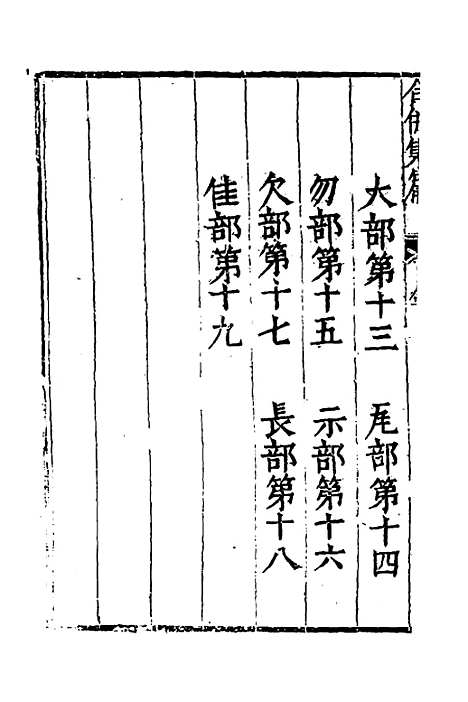 大部第十三　尾部第十四
勿部第十五　示部第十六
欠部第十七　長部第十八
佳部第十九